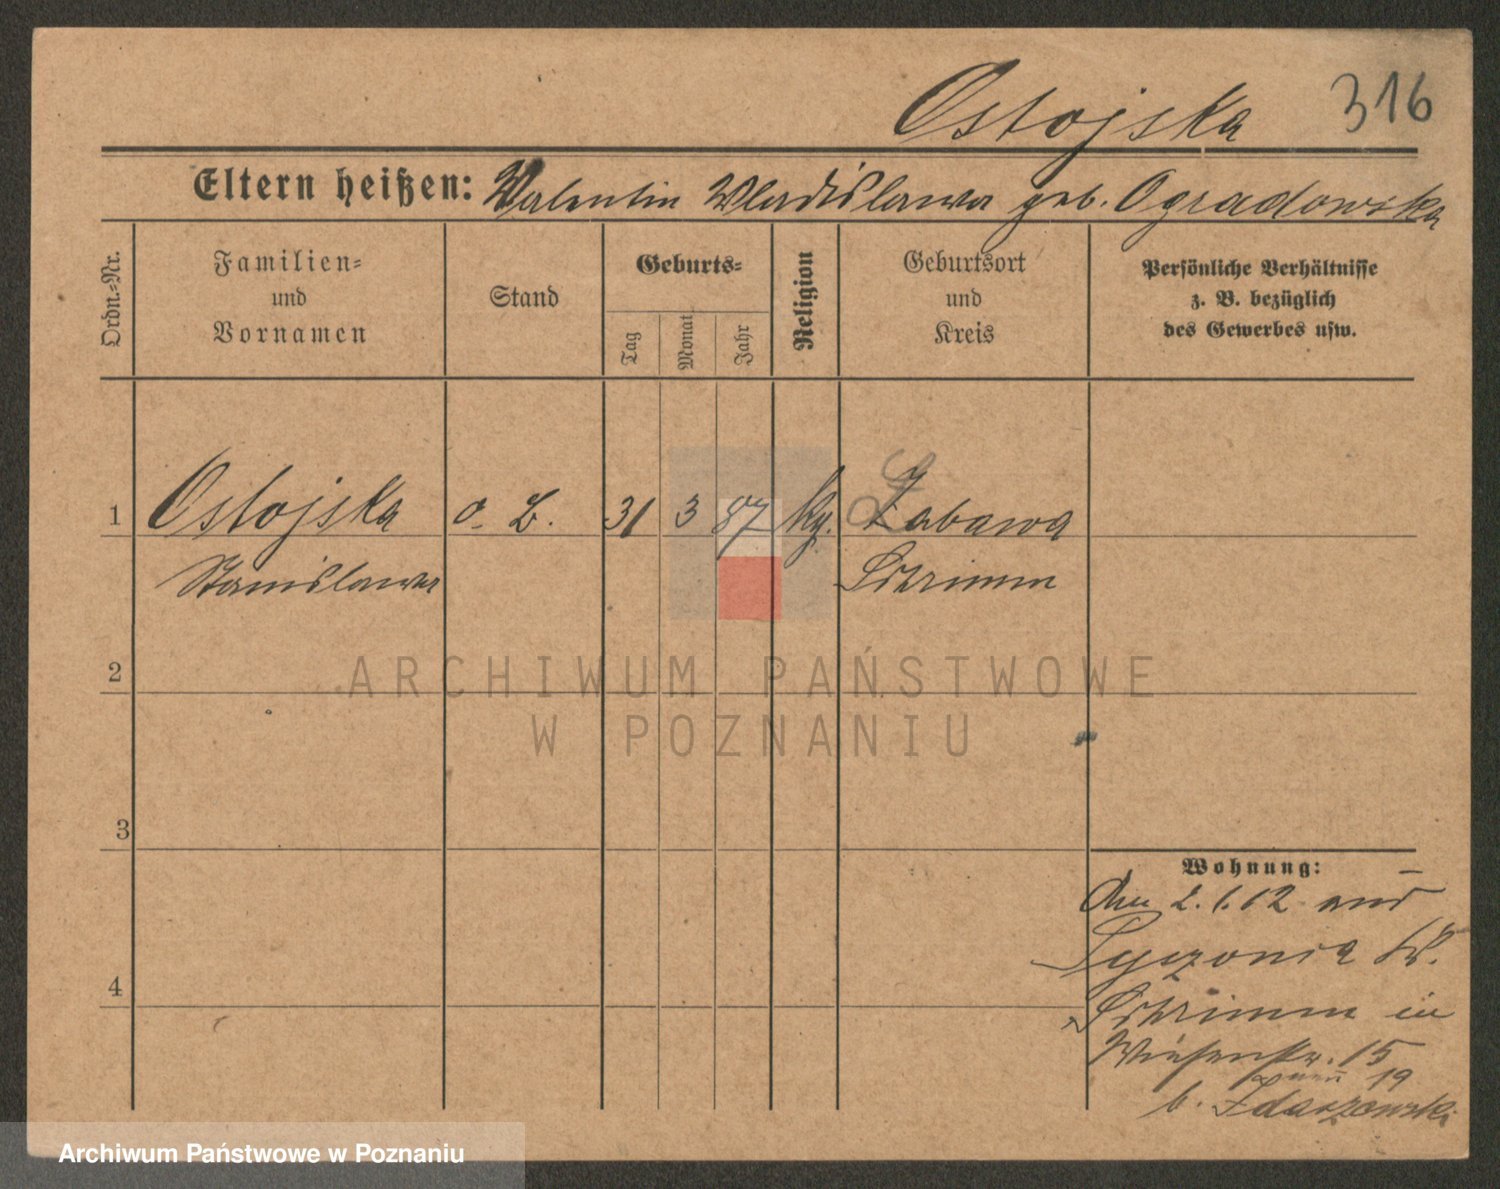 Ostojska 316
Eltern heißen: Valentin Wladislawa geb. Ogradowska
Ordn.-Nr.
Familien-
und
Vornamen
Stand
Geburts-
Tag
Monat
Jahr
Religion
Geburtsort
und
Kreis
Persönliche Verhältnisse
z. B. bezüglich
des Gewerbes usw.
1 Ostojska o. B. 31 3 87 kg. Zabawa
Stanislawa Schrimm
2
ARCHIWUM PAŃSTWOWE
W POZNANIU
3
Wohnung:
Am 2.1.12 aus
4
Schrimm in
Wiesenstr. 15
neu 19
b. Zdarzowski
Archiwum Państwowe w Poznaniu